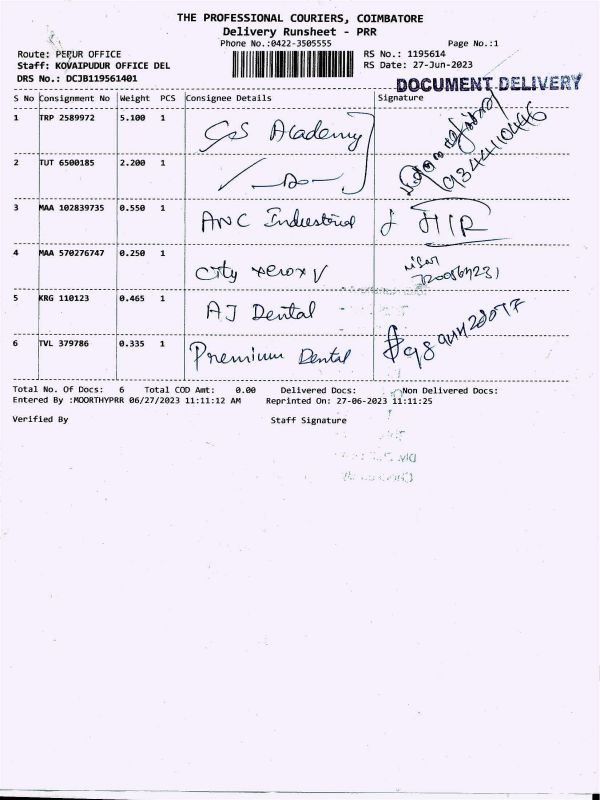 THE PROFESSIONAL COURIERS, COIMBATORE
Delivery Runsheet - PRR
Phone No.:0422-3505555 Page No.:1
Route: PERUR OFFICE RS No.: 1195614
Staff: KOVAIPUDUR OFFICE DEL RS Date: 27-Jun-2023
DRS No.: DCJB119561401
DOCUMENT DELIVERY
S No Consignment No Weight PCS Consignee Details Signature
1 TRP 2589972 5.100 1 GS Academy 9344110446
2 TUT 6500185 2.200 1 — Do —
3 MAA 102839735 0.550 1 ANC Industrial
4 MAA 570276747 0.250 1 City xerox V
5 KRG 110123 0.465 1 AJ Dental
6 TVL 379786 0.335 1 Premium Dental
Total No. Of Docs: 6 Total COD Amt: 0.00 Delivered Docs: Non Delivered Docs:
Entered By :MOORTHYPRR 06/27/2023 11:11:12 AM Reprinted On: 27-06-2023 11:11:25
Verified By Staff Signature